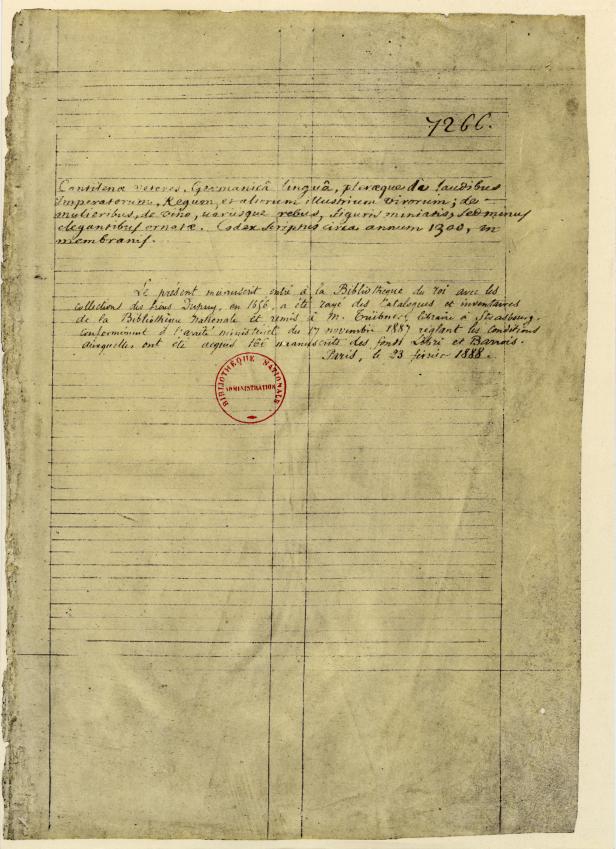 7266.
Cantilenæ veteres, Germanicâ linguâ, pleræque de laudibus
Imperatorum, Regum, et aliorum illustrium virorum; de
mulieribus, de vino, uariisque rebus, figuris miniatis, sed minus
elegantibus ornatæ. Codex scriptus circa annum 1300, in
membranis.
Le présent manuscrit entré à la Bibliothèque du roi avec les
collections des frères Dupuy, en 1656, a été rayé des Catalogues et inventaires
de la Bibliothèque Nationale et remis à M. Trübner, libraire à Strasbourg,
conformément à l'arrêté ministériel du 17 novembre 1887 réglant les conditions
auxquelles ont été acquis 166 manuscrits des fonds Libri et Barrois.
Paris, le 23 février 1888.
BIBLIOTHÈQUE NATIONALE
ADMINISTRATION